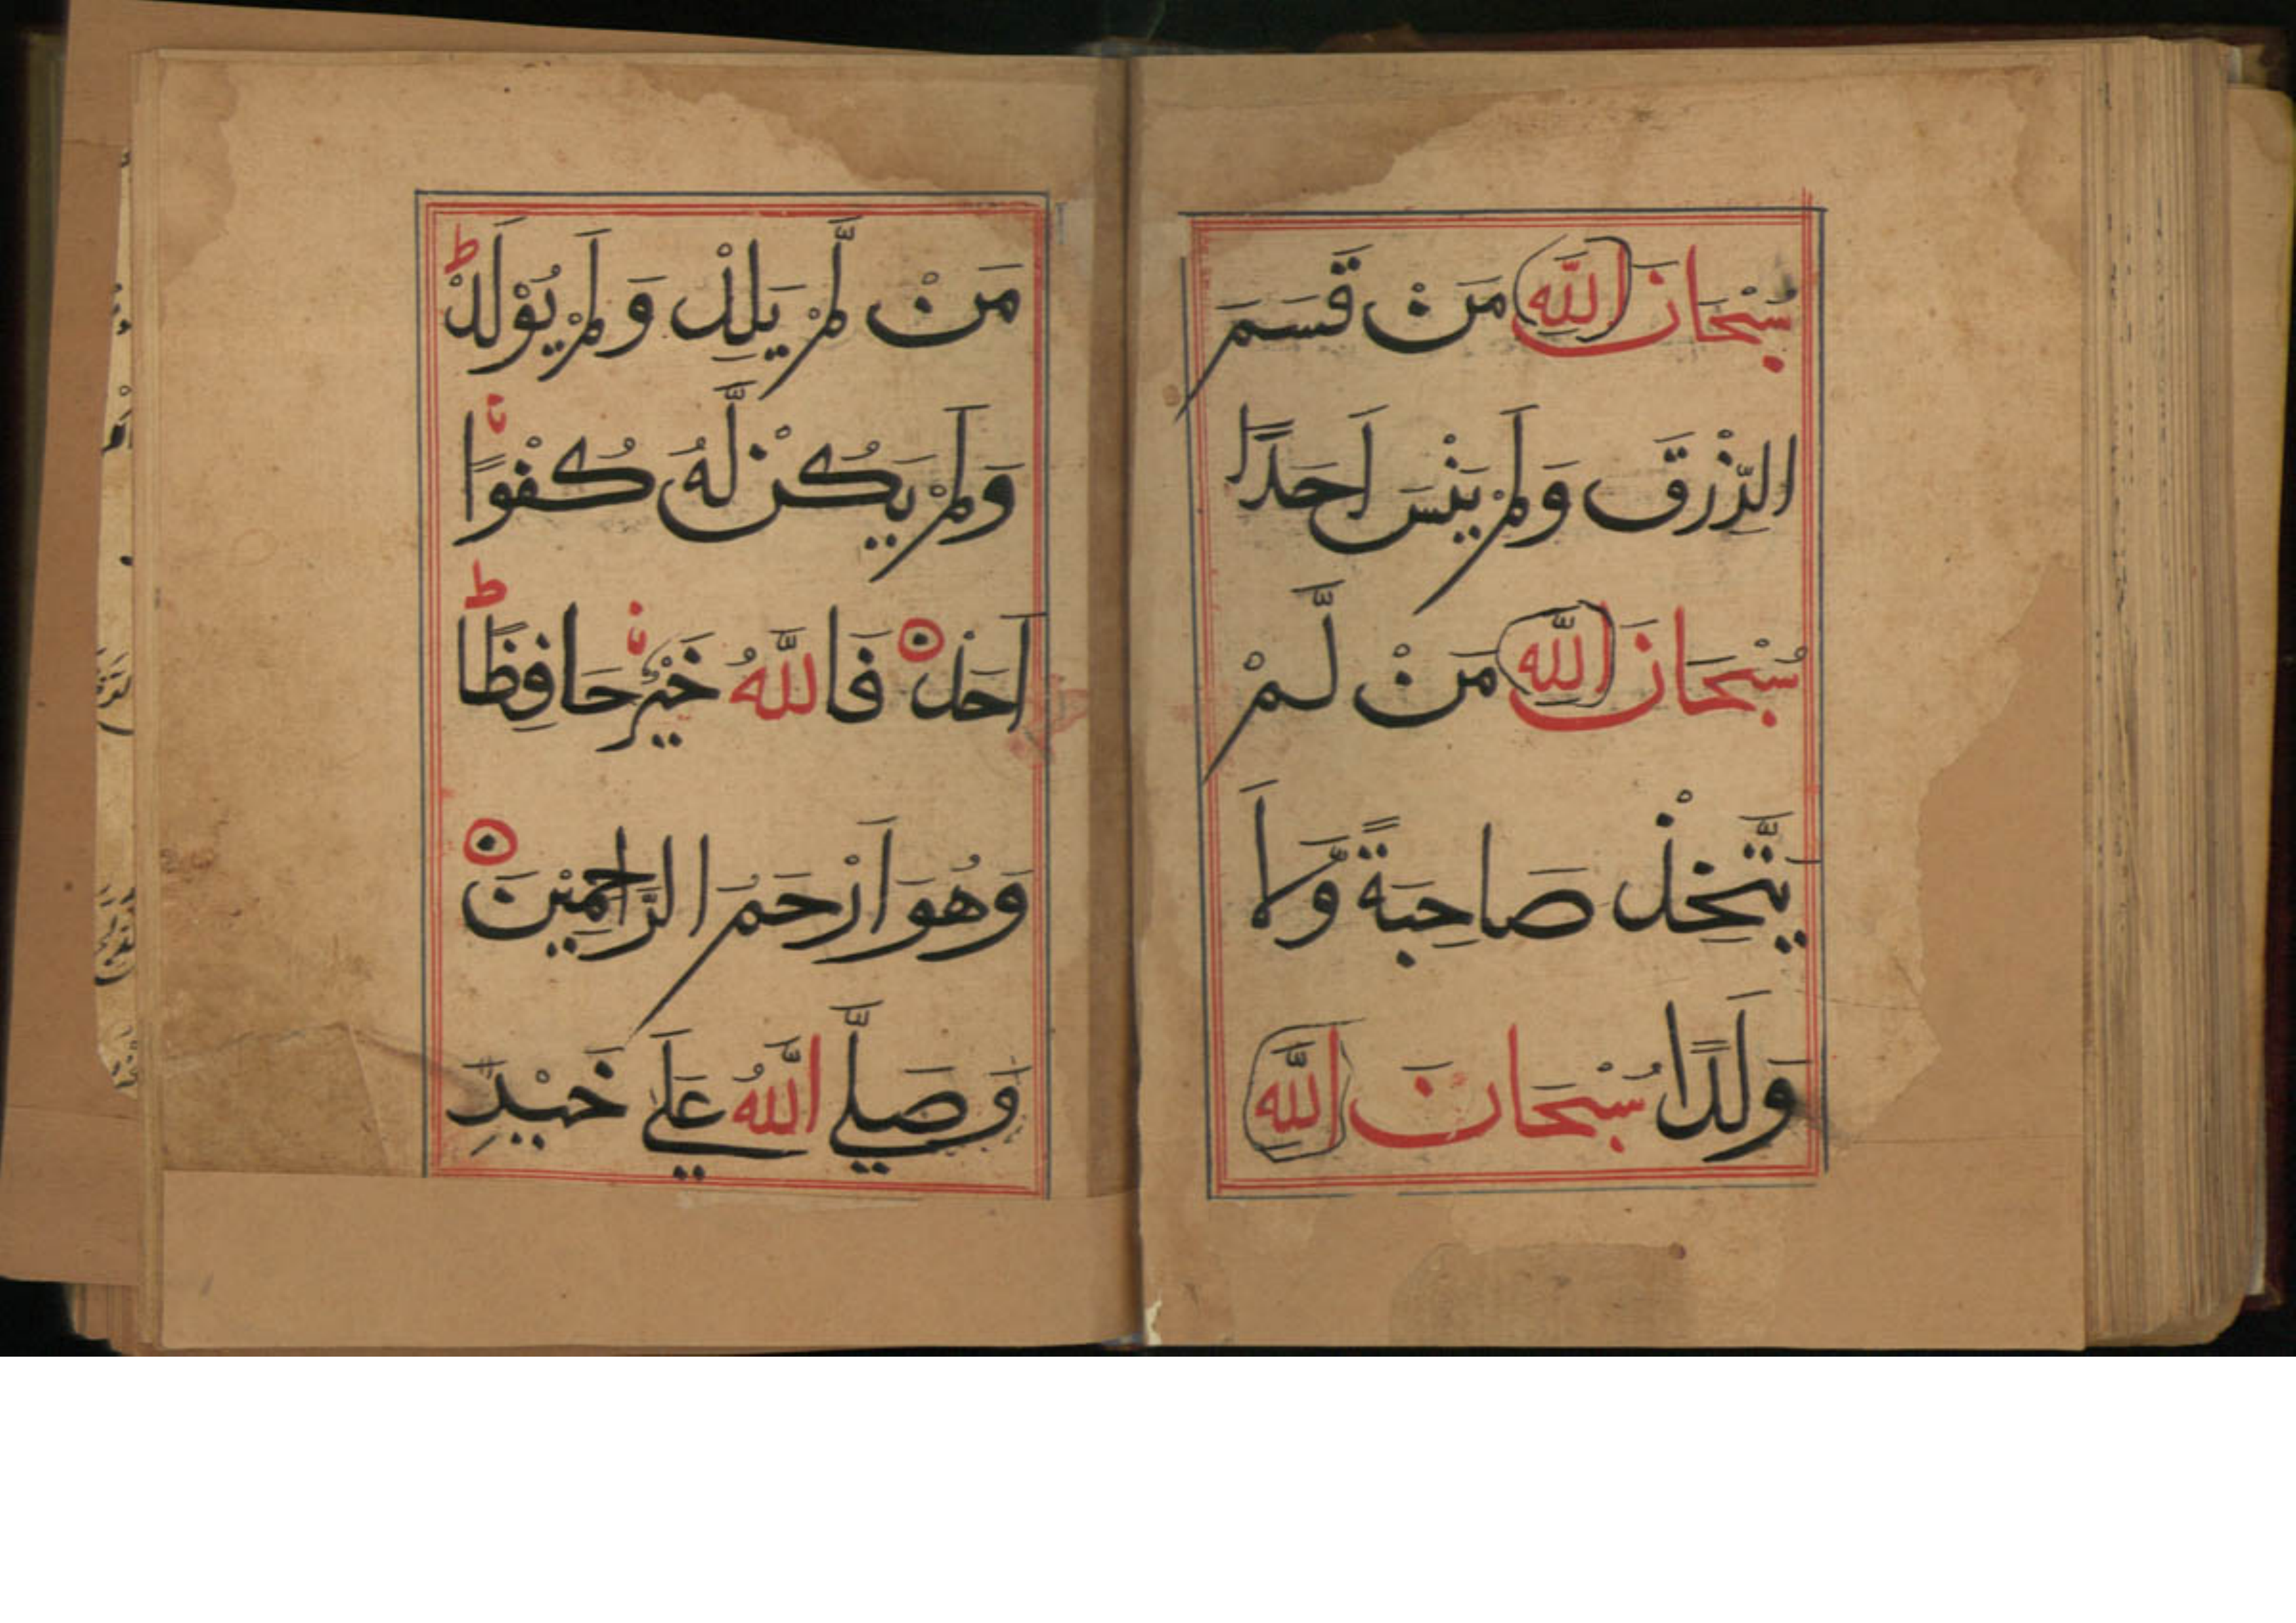 سُبْحَانَ اللّٰهِ مَنْ قَسَمَ
الرِّزْقَ وَلَمْ يَنْسَ اَحَدًا
سُبْحَانَ اللّٰهِ مَنْ لَّمْ
يَتَّخِذْ صَاحِبَةً وَّلَا
وَلَدًا سُبْحَانَ اللّٰهِ
مَنْ لَّمْ يَلِدْ وَلَمْ يُوْلَدْ ط
وَلَمْ يَكُنْ لَّهُ كُفُوًا
اَحَدٌ فَاللّٰهُ خَيْرٌ حَافِظًا ط
وَهُوَ اَرْحَمُ الرَّاحِمِيْنَ
وَصَلَّي اللّٰهُ عَلَي